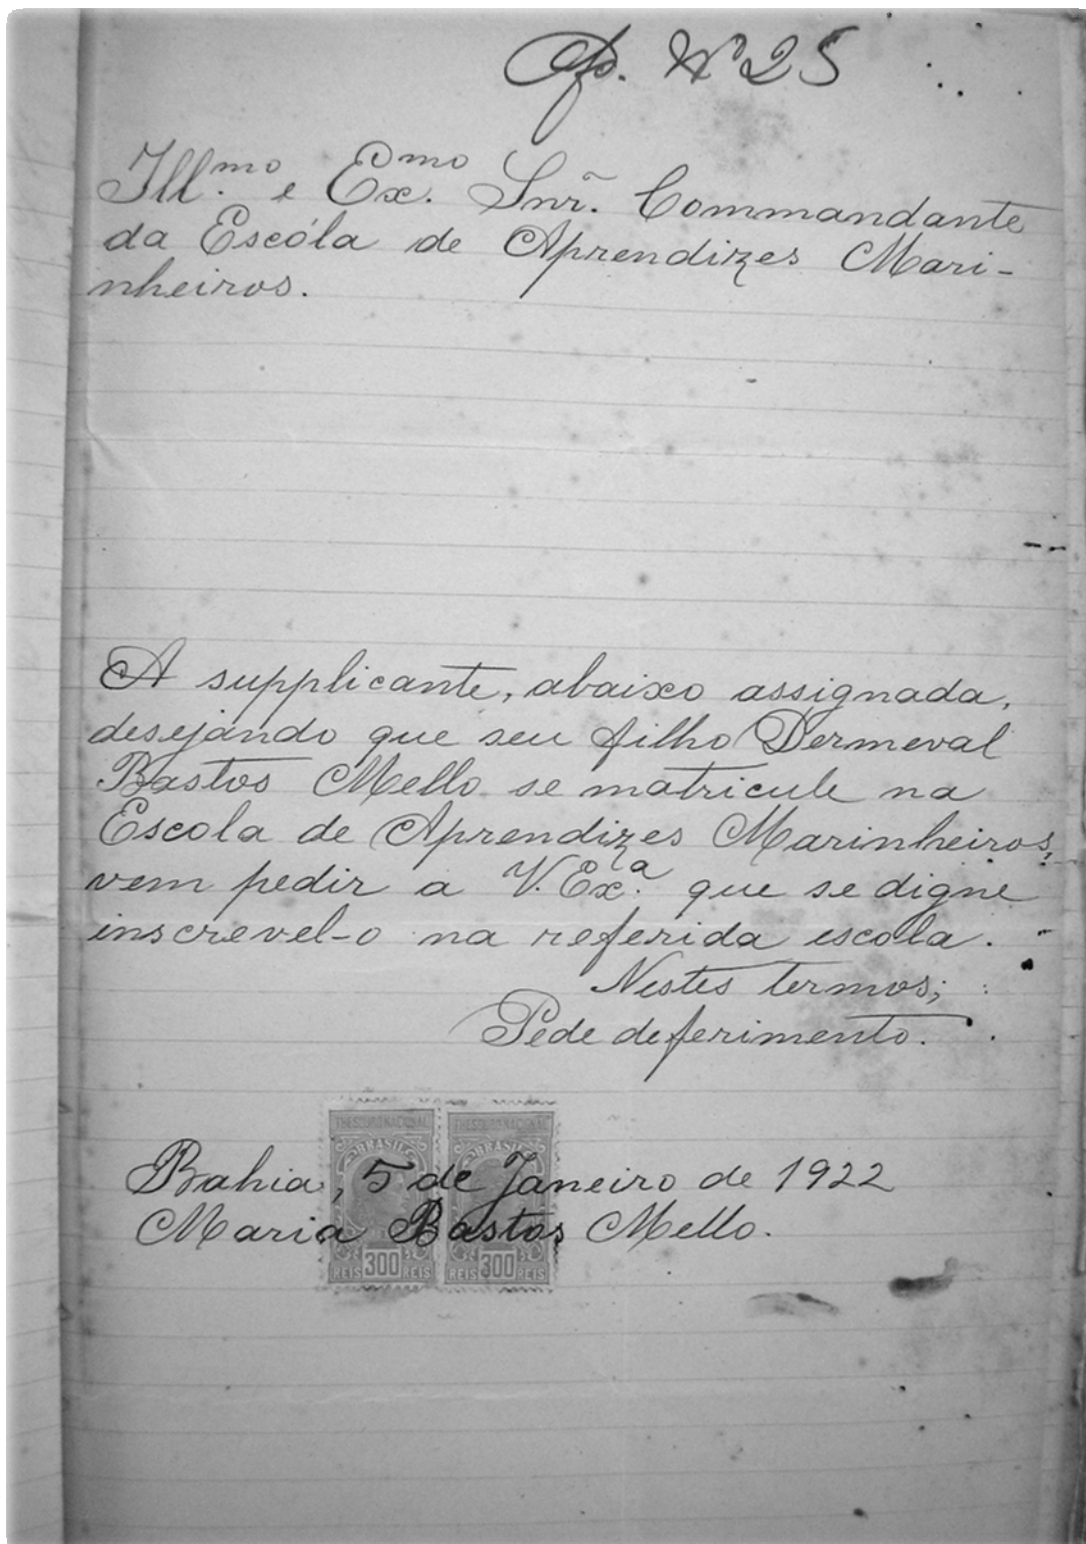 Op. Nº 25
Ill.mo e Ex.mo Snr. Commandante
da Escóla de Aprendizes Mari-
nheiros.
A supplicante, abaixo assignada,
desejando que seu filho Dermeval
Bastos Mello se matricule na
Escola de Aprendizes Marinheiros,
vem pedir a V. Ex.a que se digne
inscrevel-o na referida escola.
Nestes termos;
Pede deferimento.
THESOURO NACIONAL THESOURO NACIONAL
BRASIL BRASIL
Bahia, 5 de Janeiro de 1922
Maria Bastos Mello.
REIS 300 REIS REIS 300 REIS